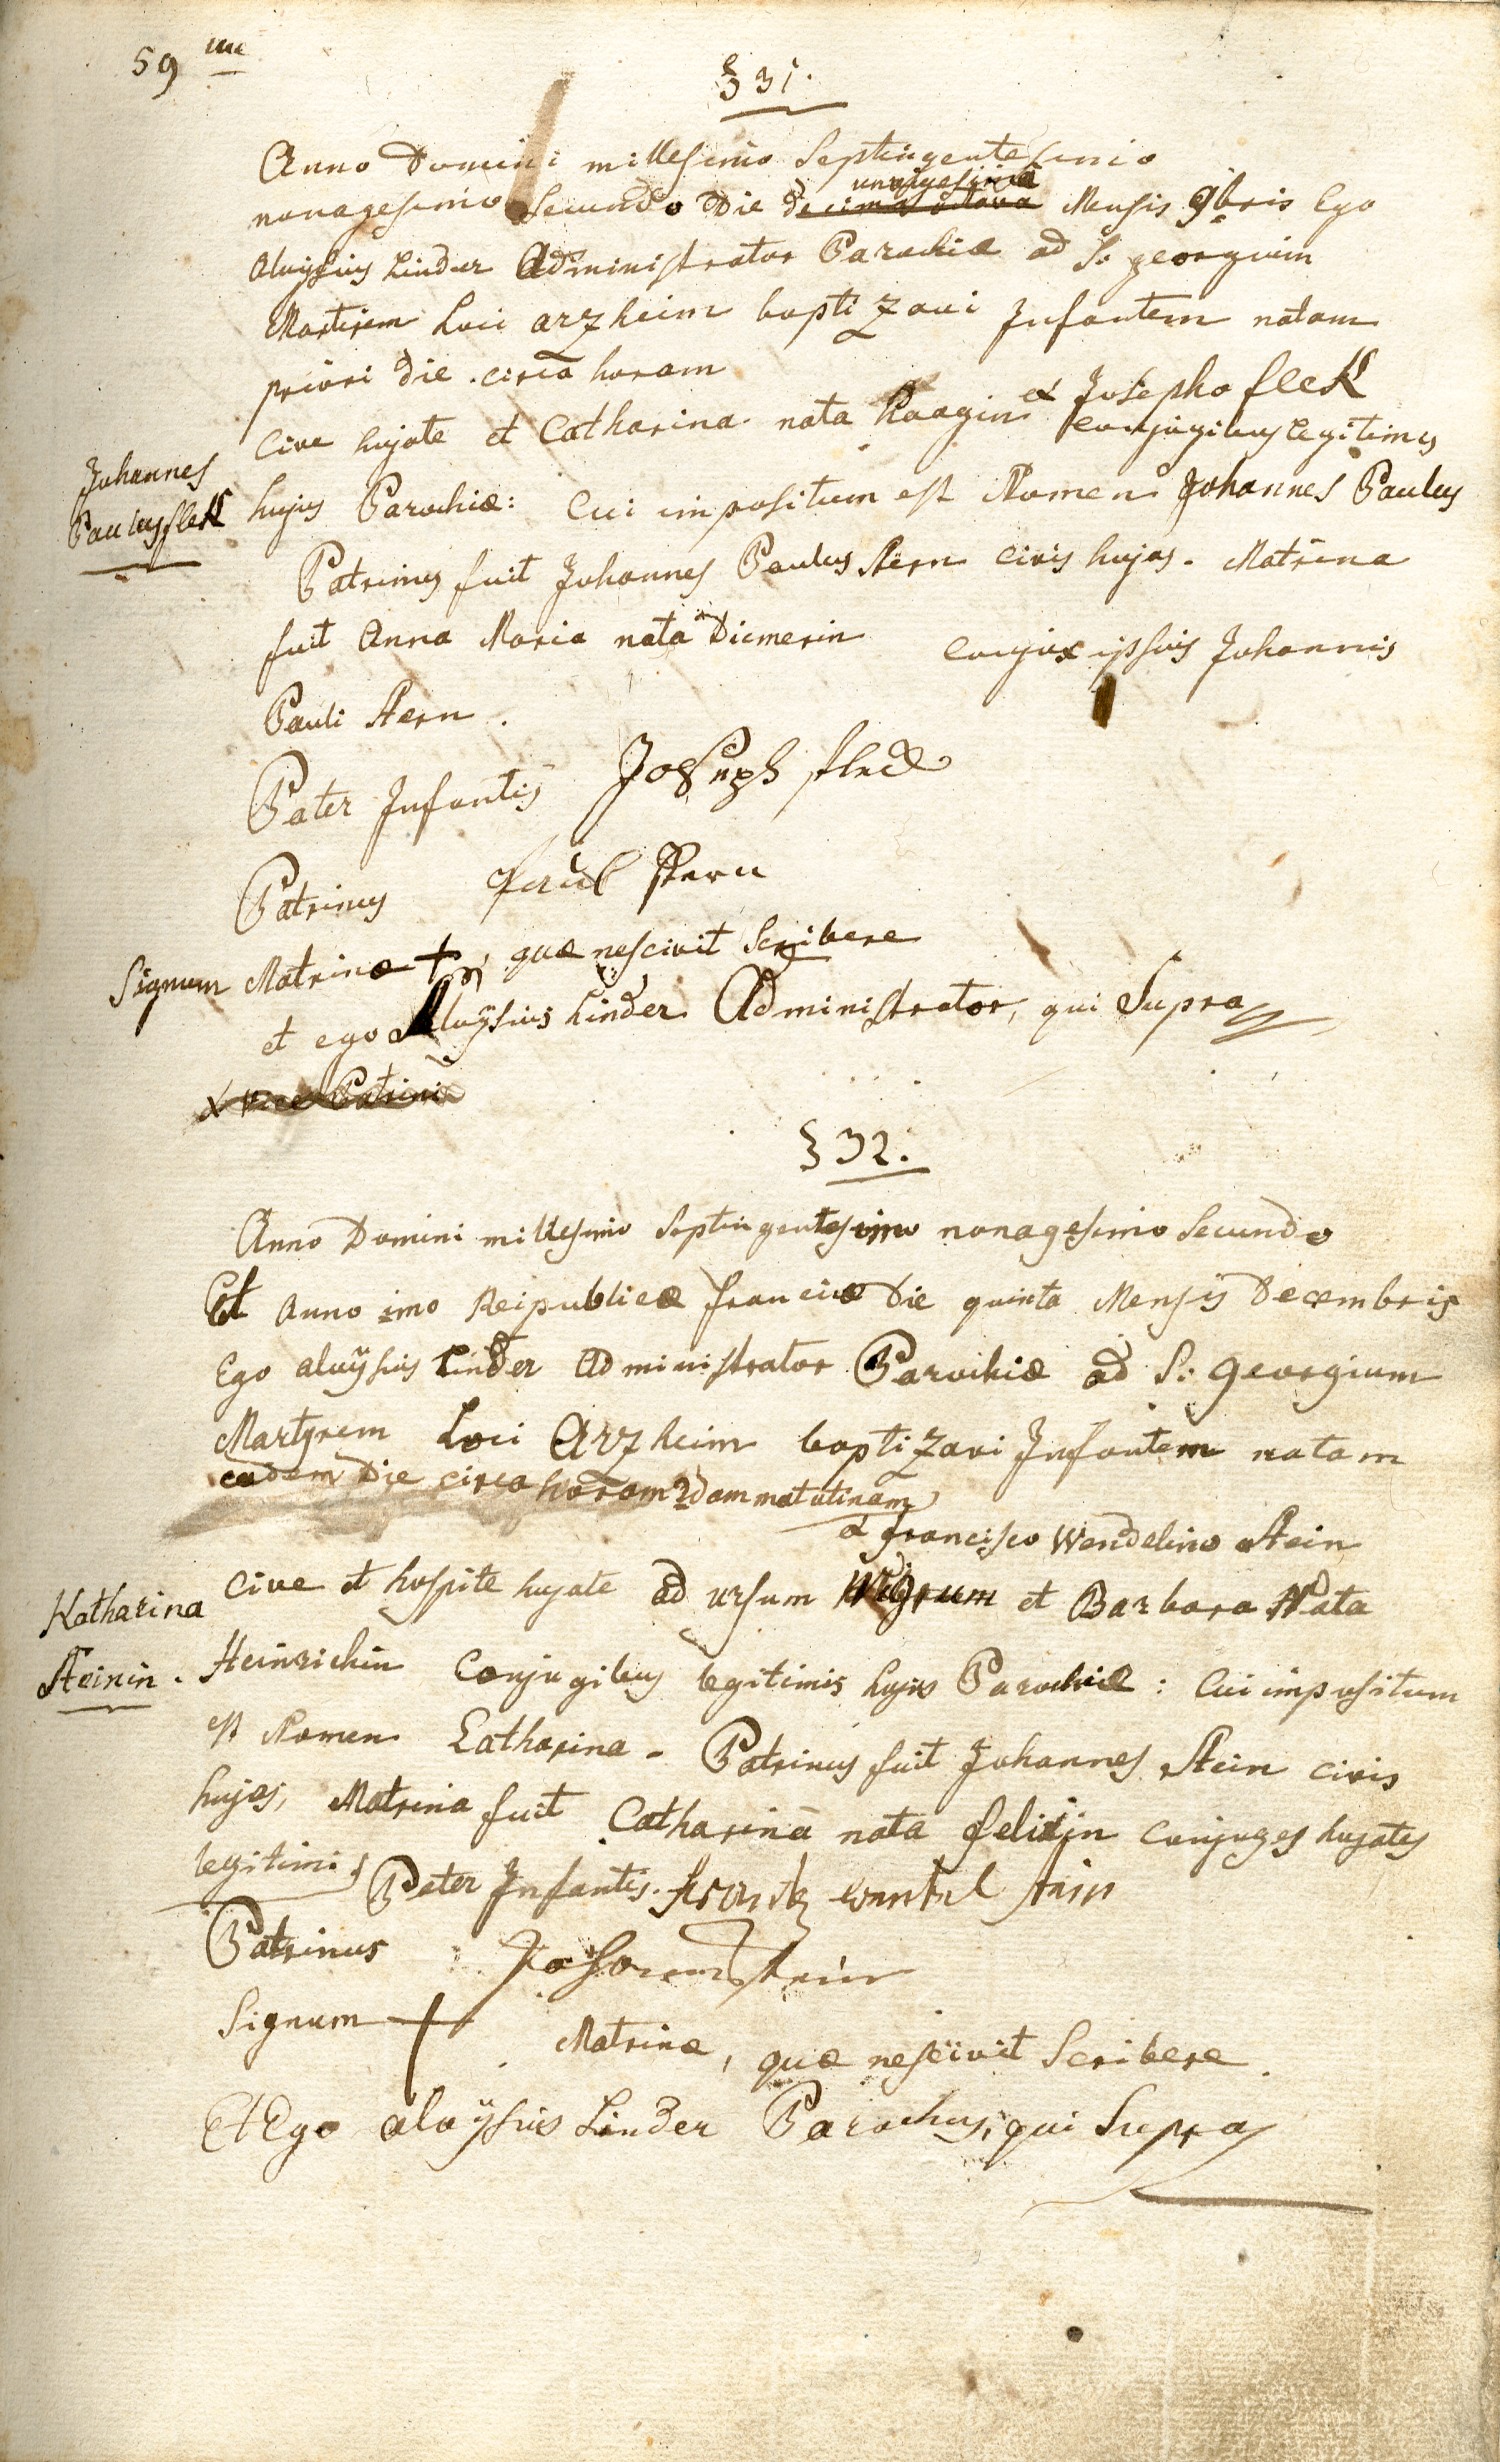 59 mu
§ 31.
Anno Domini millesimo Septingentesimo
unvigesima
nonagesimo Secundo Die decima octava Mensis 9bris Ego
Aluysius Linder Administrator Parochiæ ad S. georgium
Martirem Loci arzheim baptizavi Infantem natam
priori die. circa horam
ex Josepho fleck
Cive hujate et Catharina nata Haagin conjugibus legitimis
Johannes
Paulus fleck
hujus Parochiæ: Cui impositum est Nomen Johannes Paulus
Patrinus fuit Johannes Paulus Stern civis hujas. Matrina
fuit Anna Maria nata Diemerin conjux ipsius Johannis
Pauli Stern.
Pater Infantis Joseph fleck
Patrinus Paul Stern
Signum Matrinæ +, quæ nescivit Scribere
et ego Aluÿsius Linder Administrator, qui Supra
x vice Patrini
§ 32.
Anno Domini millesimo Septingentesimo nonagesimo Secundo
Et anno imo Reipublicæ franciæ Die quinta Mensis Decembris
Ego aluÿsius Linder Administrator Parochiæ ad S: georgium
Martyrem Loci Arzheim baptizavi Infantem natam
eadem Die circa horam 2dam matutinam
a francisco Wendelino Stein
Cive et hospite hujate ad ursum Nigrum et Barbara Nata
Katharina
Steinin.
Heinrichin Conjugibus legitimis hujus Parochiæ: Cui impositum
est Nomen Catharina. Patrinus fuit Johannes Stein civis
hujas, Matrina fuit Catharina nata conjuges hujates
legitimis
Pater Infantis. frantz wentel stein
Patrinus Johannes stein
Signum + Matrinæ, quæ nescivit Scribere
Et Ego aloÿsius Linder Parochus, qui Supra